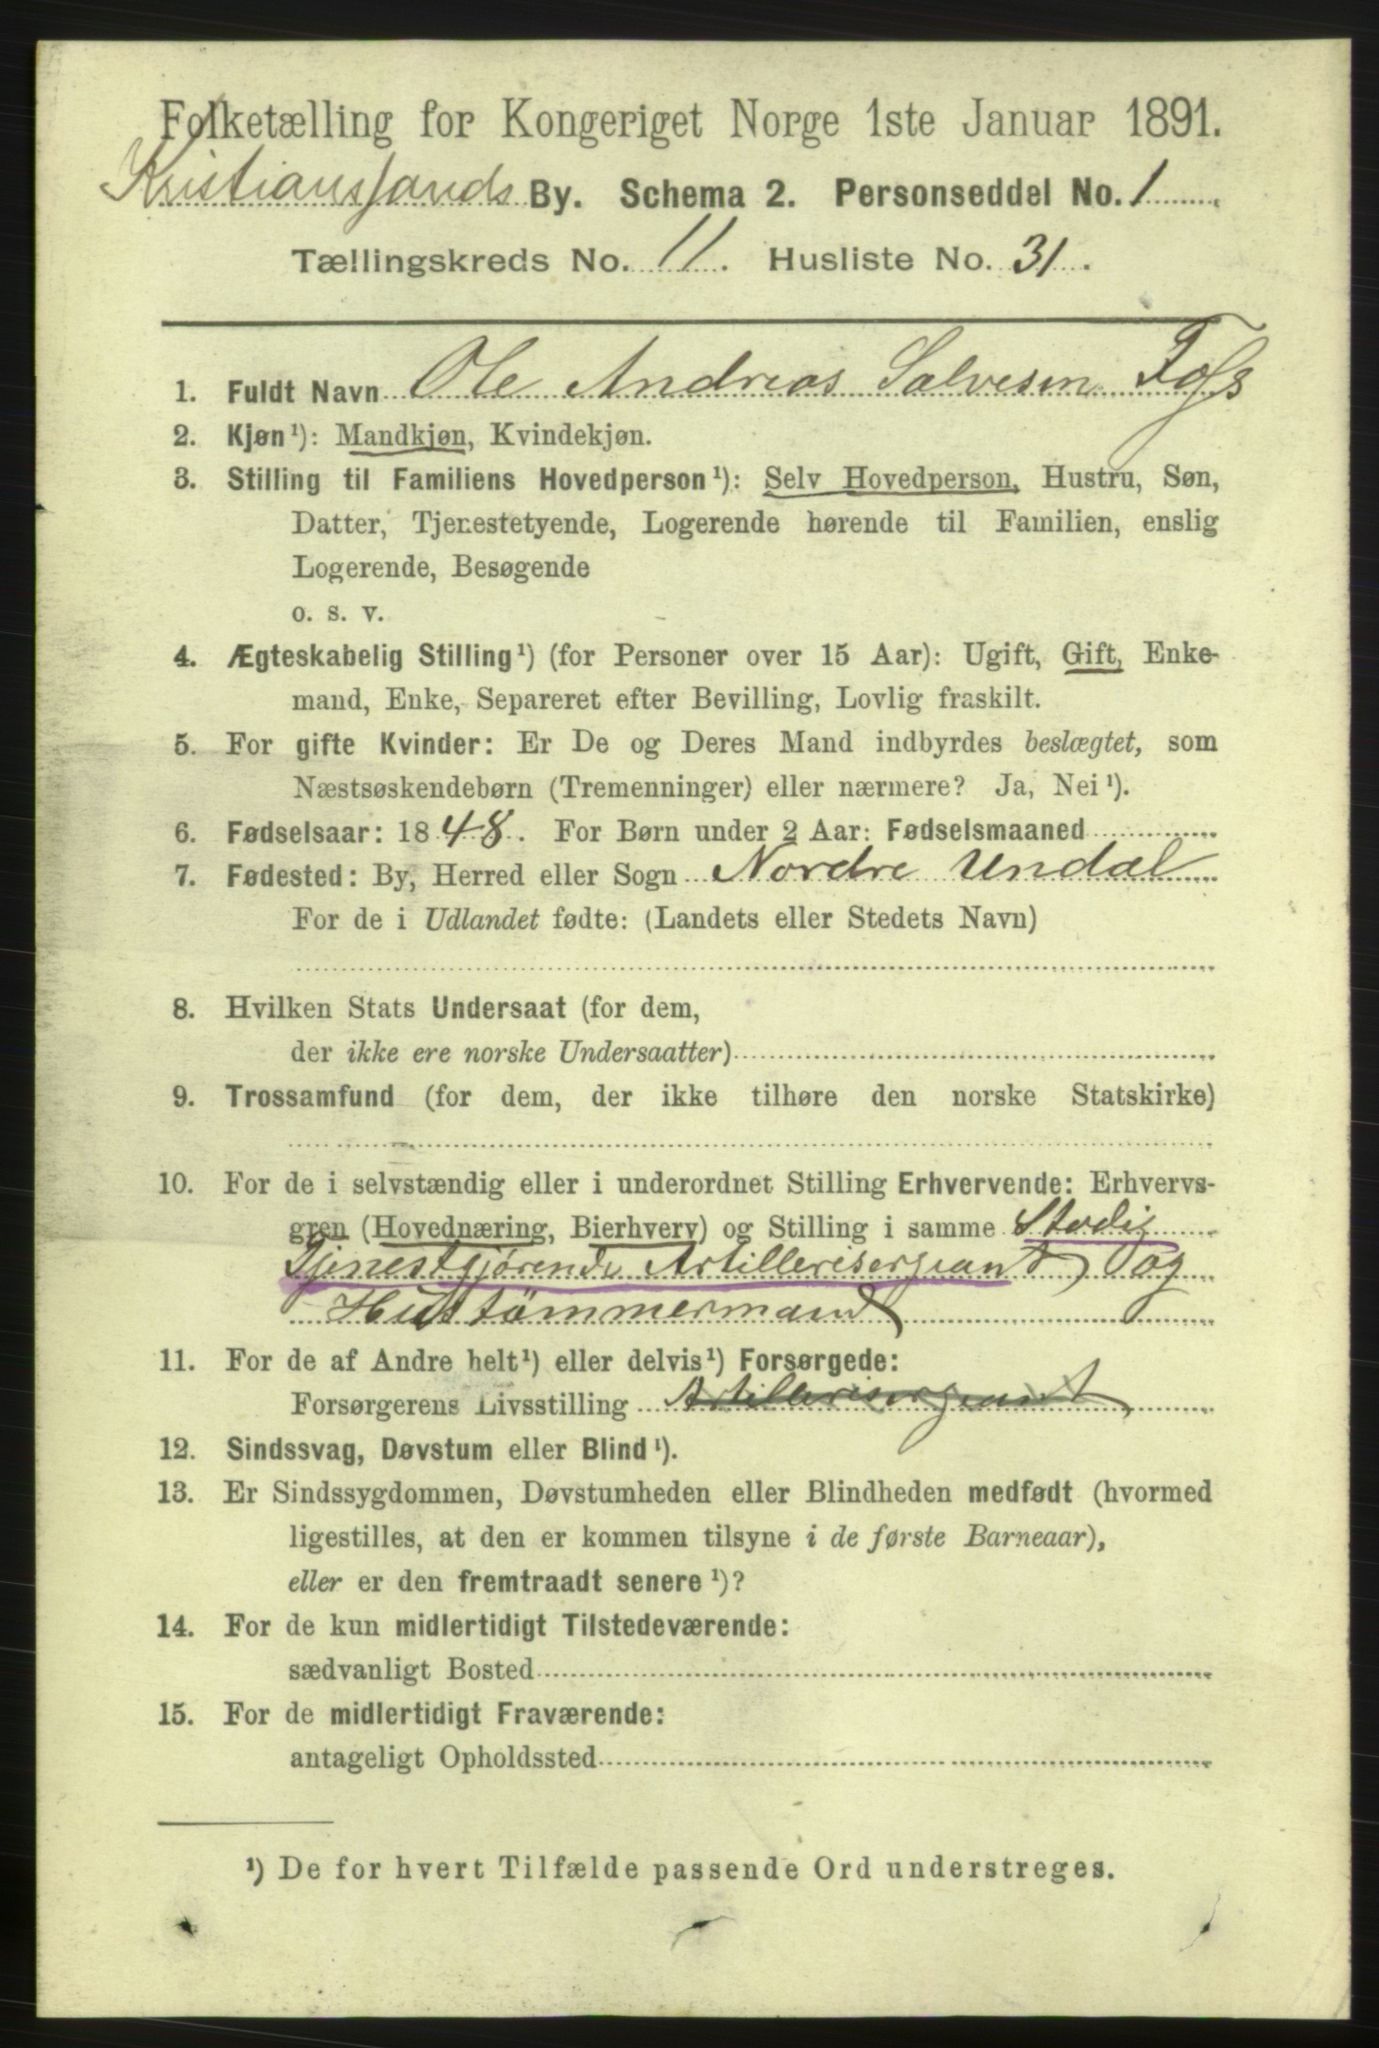 Folketælling for Kongeriget Norge 1ste Januar 1891.
Kristianssands By. Schema 2. Personseddel No. 1
Tællingskreds No. 11. Husliste No. 31.
1. Fuldt Navn Ole Andreas Salvesen Foss
2. Kjøn¹): Mandkjøn, Kvindekjøn.
3. Stilling til Familiens Hovedperson¹): Selv Hovedperson, Hustru, Søn,
Datter, Tjenestetyende, Logerende hørende til Familien, enslig
Logerende, Besøgende
o. s. v.
4. Ægteskabelig Stilling¹) (for Personer over 15 Aar): Ugift, Gift, Enke-
mand, Enke, Separeret efter Bevilling, Lovlig fraskilt.
5. For gifte Kvinder: Er De og Deres Mand indbyrdes beslægtet, som
Næstsøskendebørn (Tremenninger) eller nærmere? Ja, Nei¹).
6. Fødselsaar: 1848. For Børn under 2 Aar: Fødselsmaaned
7. Fødested: By, Herred eller Sogn Nordre Undal
For de i Udlandet fødte: (Landets eller Stedets Navn)
8. Hvilken Stats Undersaat (for dem,
der ikke ere norske Undersaatter)
9. Trossamfund (for dem, der ikke tilhøre den norske Statskirke)
10. For de i selvstændig eller i underordnet Stilling Erhvervende: Erhvervs-
gren (Hovednæring, Bierhverv) og Stilling i samme Stadig
Tjenestgjørende Artillerisergeant og
Hustömmermand
11. For de af Andre helt¹) eller delvis¹) Forsørgede:
Forsørgerens Livsstilling Artillerisergeant
12. Sindssvag, Døvstum eller Blind¹).
13. Er Sindssygdommen, Døvstumheden eller Blindheden medfødt (hvormed
ligestilles, at den er kommen tilsyne i de første Barneaar),
eller er den fremtraadt senere¹)?
14. For de kun midlertidigt Tilstedeværende:
sædvanligt Bosted
15. For de midlertidigt Fraværende:
antageligt Opholdssted
¹) De for hvert Tilfælde passende Ord understreges.